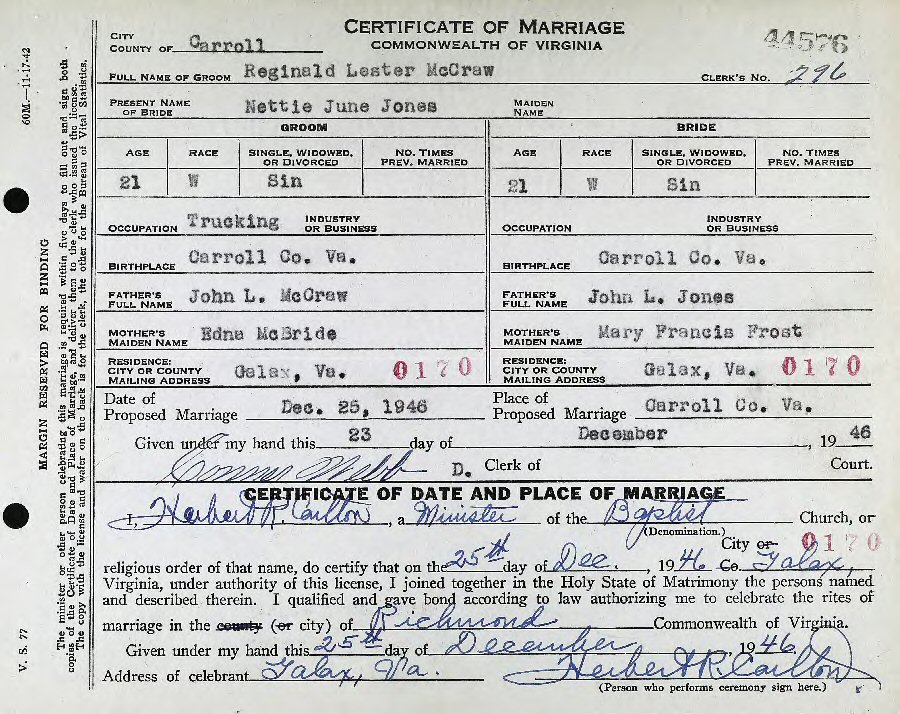 CERTIFICATE OF MARRIAGE
COMMONWEALTH OF VIRGINIA
CITY
COUNTY OF Carroll
44576
FULL NAME OF GROOM Reginald Lester McCraw CLERK'S NO. 296
PRESENT NAME OF BRIDE Nettie June Jones MAIDEN NAME
GROOM BRIDE
AGE RACE SINGLE, WIDOWED, OR DIVORCED NO. TIMES PREV. MARRIED AGE RACE SINGLE, WIDOWED, OR DIVORCED NO. TIMES PREV. MARRIED
21 W Sin 21 W Sin
OCCUPATION Trucking INDUSTRY OR BUSINESS OCCUPATION INDUSTRY OR BUSINESS
BIRTHPLACE Carroll Co. Va. BIRTHPLACE Carroll Co. Va.
FATHER'S FULL NAME John L. McCraw FATHER'S FULL NAME John L. Jones
MOTHER'S MAIDEN NAME Edna McBride MOTHER'S MAIDEN NAME Mary Francis Frost
RESIDENCE: CITY OR COUNTY MAILING ADDRESS Galax, Va. 0170 RESIDENCE: CITY OR COUNTY MAILING ADDRESS Galax, Va. 0170
Date of Proposed Marriage Dec. 25, 1946 Place of Proposed Marriage Carroll Co. Va.
Given under my hand this 23 day of December, 19 46
Webb D. Clerk of Court.
CERTIFICATE OF DATE AND PLACE OF MARRIAGE
I, Herbert R. Carlton, a Minister of the Baptist Church, or
(Denomination.)
City or 0170
religious order of that name, do certify that on the 25th day of Dec., 1946 Co. Galax,
Virginia, under authority of this license, I joined together in the Holy State of Matrimony the persons named
and described therein. I qualified and gave bond according to law authorizing me to celebrate the rites of
marriage in the county (or city) of Richmond Commonwealth of Virginia.
Given under my hand this 25th day of December, 1946
Address of celebrant Galax, Va. Herbert R. Carlton
(Person who performs ceremony sign here.)
60M.—11-17-42
MARGIN RESERVED FOR BINDING
V. S. 77
The minister or other person celebrating this marriage is required within five days to fill out and sign both
copies of the Certificate of Date and Place of Marriage, and deliver them to the clerk who issued the license.
The copy with the license and water on the back is for the clerk, the other for the Bureau of Vital Statistics.